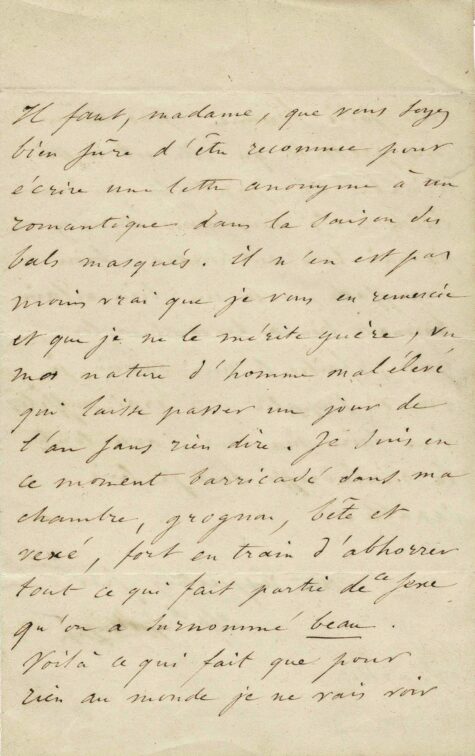 Il faut, madame, que vous soyez
bien sûre d'être reconnue pour
écrire une lettre anonyme à un
romantique dans la saison des
bals masqués. il n'en est pas
moins vrai que je vous en remercie
et que je ne le mérite guère, vu
ma nature d'homme mal élevé
qui laisse passer un jour de
l'an sans rien dire. Je suis en
ce moment barricadé dans ma
chambre, grognon, bête et
vexé, fort en train d'abhorrer
tout ce qui fait partie de ce sexe
qu'on a surnommé beau.
Voilà ce qui fait que pour
rien au monde je ne vais voir